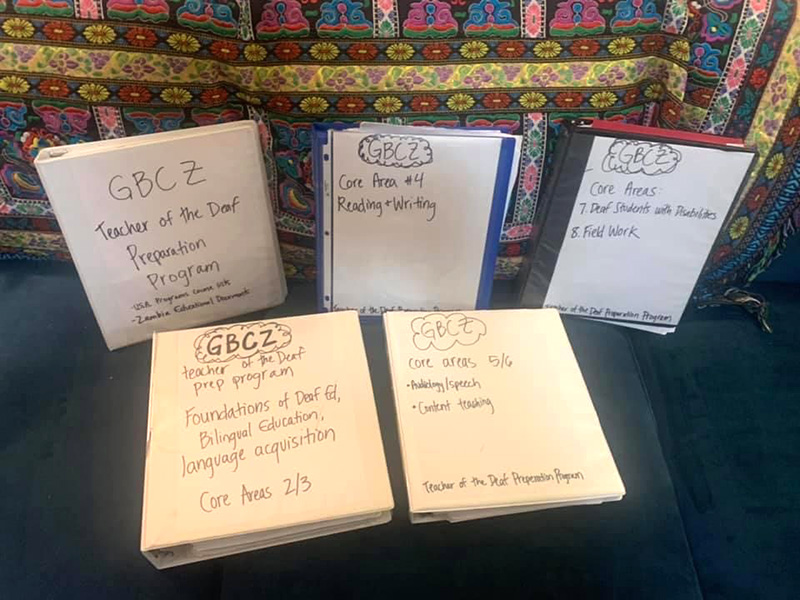 GBCZ
Teacher of the Deaf
Preparation
Program
-USA Programs Course lists
-Zambia Educational Documents
GBCZ
Core Area #4
Reading + Writing
Teacher of the Deaf Preparation
GBCZ
Core Areas:
7. Deaf Students with Disabilities
8. Field Work
Teacher of the Deaf Preparation Program
GBCZ
teacher of the Deaf
prep program
Foundations of Deaf Ed,
Bilingual Education,
language acquisition
Core Areas 2/3
GBCZ
core areas 5/6
• Audiology/speech
• Content teaching
Teacher of the Deaf Preperation Program